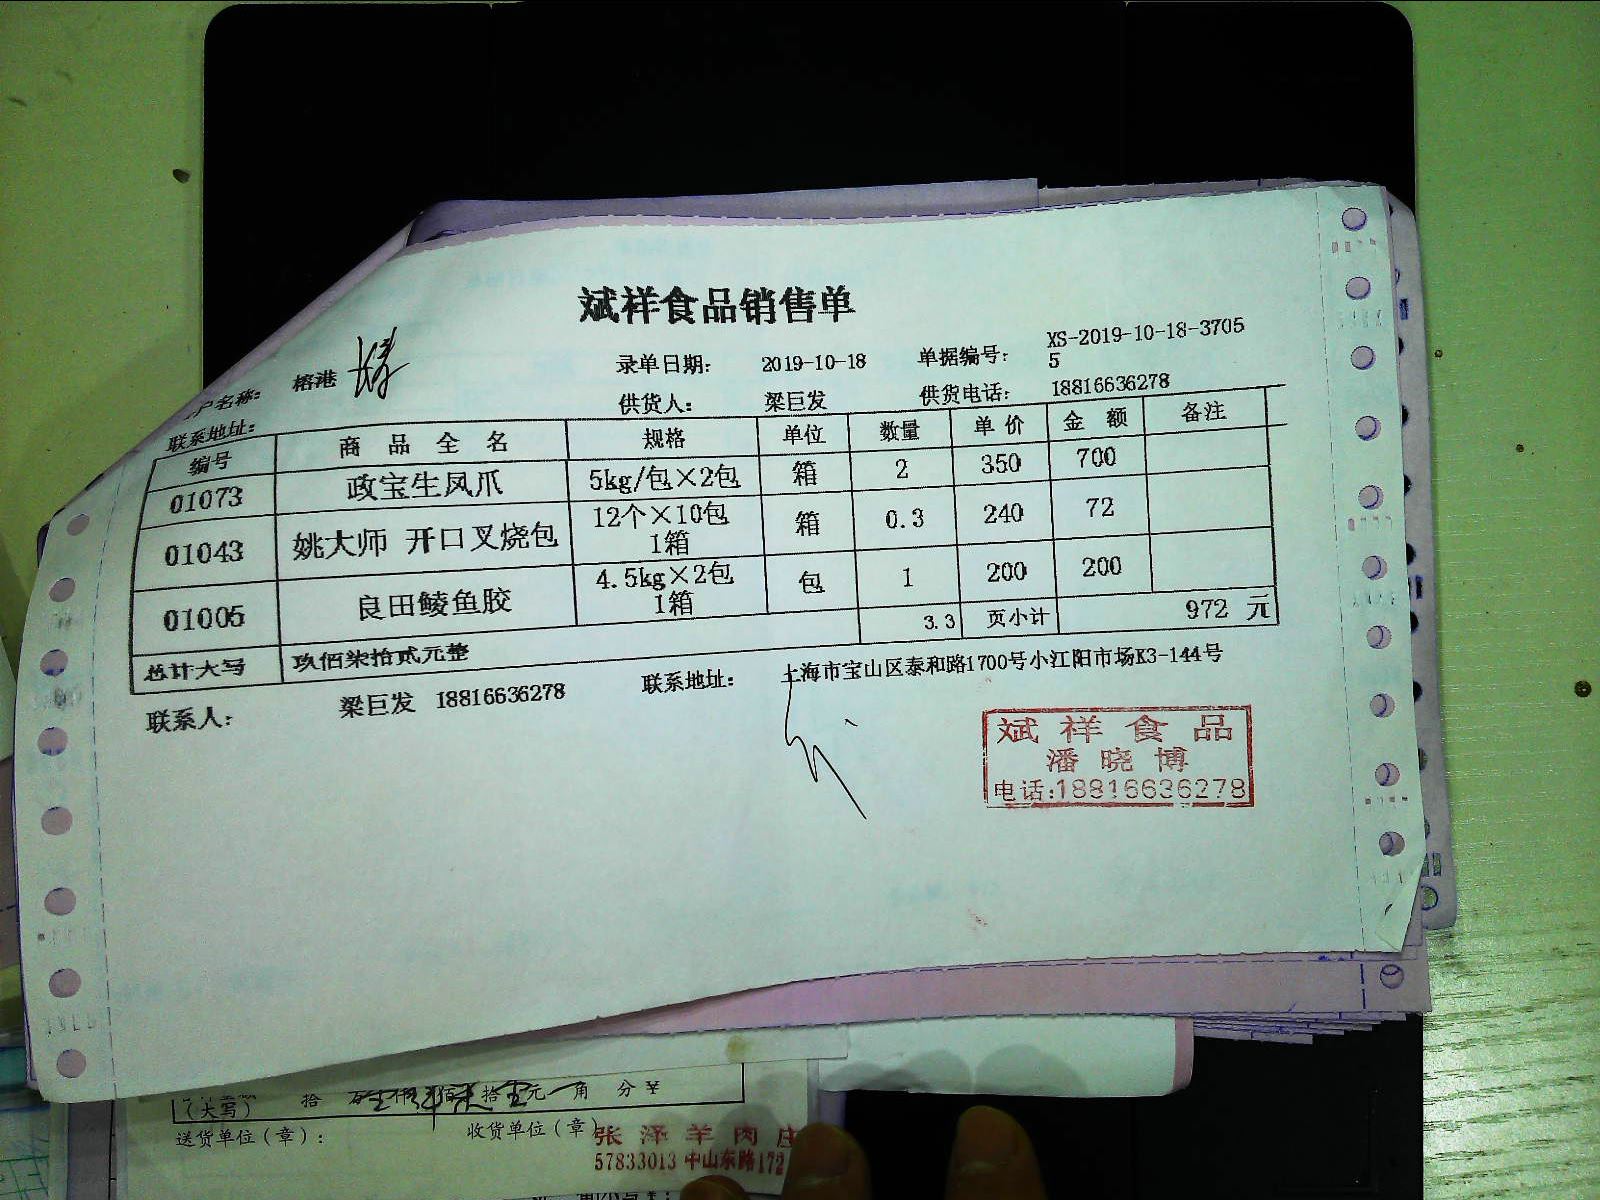 斌祥食品销售单
户名称: 榕港 录单日期: 2019-10-18 单据编号: XS-2019-10-18-3705
5
联系地址: 供货人: 梁巨发 供货电话: 18816636278
编号 商 品 全 名 规格 单位 数量 单 价 金 额 备注
01073 政宝生凤爪 5kg/包×2包 箱 2 350 700
01043 姚大师 开口叉烧包 12个×10包 1箱 箱 0.3 240 72
01005 良田鲮鱼胶 4.5kg×2包 1箱 包 1 200 200
3.3 页小计 972 元
总计大写 玖佰柒拾贰元整
联系人: 梁巨发 18816636278 联系地址: 上海市宝山区泰和路1700号小江阳市场K3-144号
斌祥食品
潘晓博
电话:18816636278
(大写) 拾 佰 拾 元 角 分 ¥
送货单位(章): 收货单位(章)
张泽羊肉庄
57833013 中山东路172